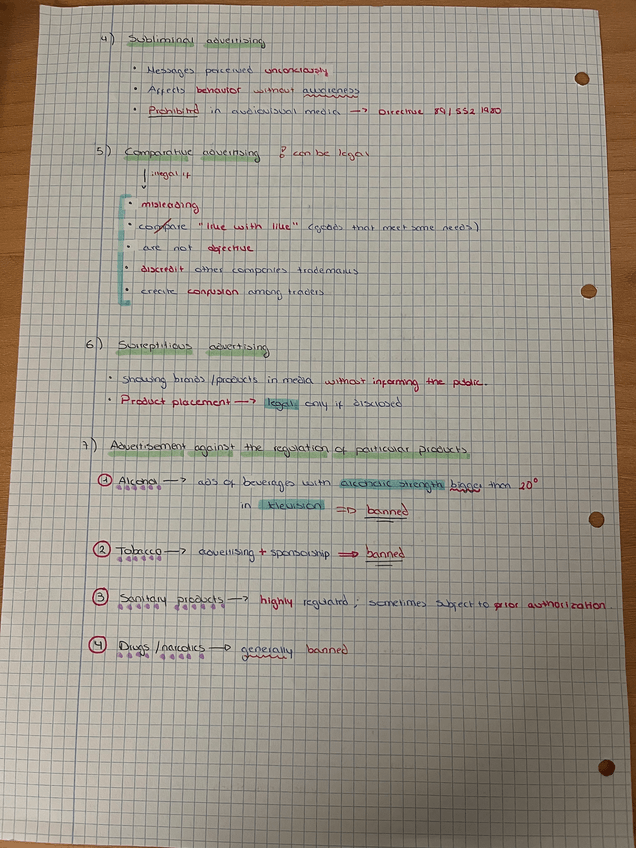 4) Subliminal advertising
• Messages perceived unconciously
• Affects behavior without awareness
• Prohibited in audiovisual media → Directive 89/552 1980
5) Comparative advertising : can be legal
illegal if
• misleading
• compare "like with like" (goods that meet same needs)
• are not objective
• discredit other companies trademarks
• create confusion among traders
6) Surreptitious advertising
• Showing brands/products in media without informing the public.
• Product placement → legal only if disclosed
7) Advertisement against the regulation of particular products
① Alcohol → ads of beverages with alcoholic strength bigger than 20°
in television ⇒ banned
② Tobacco → advertising + sponsorship ⇒ banned
③ Sanitary products → highly regulated; sometimes subject to prior authorization
④ Drugs/narcotics → generally banned